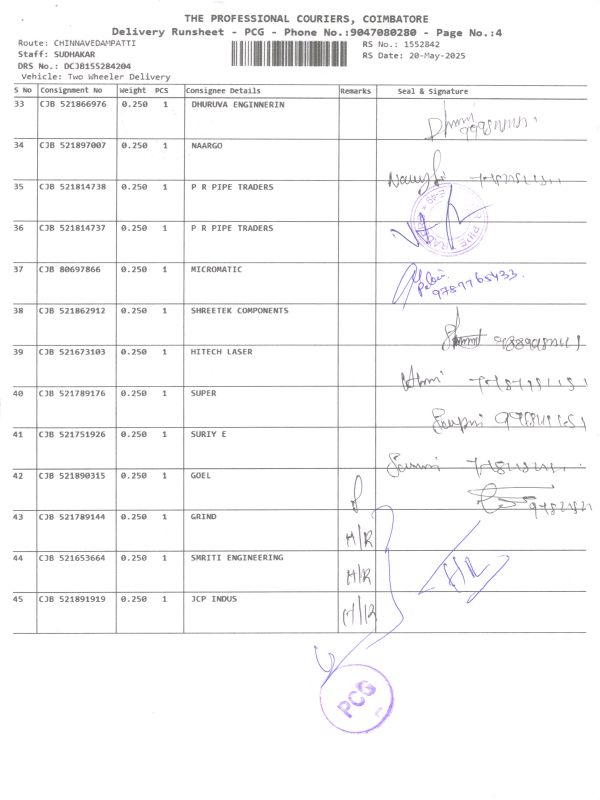 THE PROFESSIONAL COURIERS, COIMBATORE
Delivery Runsheet - PCG - Phone No.:9047080280 - Page No.:4
Route: CHINNAVEDAMPATTI RS No.: 1552842
Staff: SUDHAKAR RS Date: 20-May-2025
DRS No.: DCJB155284204
Vehicle: Two Wheeler Delivery
S No Consignment No Weight PCS Consignee Details Remarks Seal & Signature
33 CJB 521866976 0.250 1 DHURUVA ENGINNERIN
34 CJB 521897007 0.250 1 NAARGO
35 CJB 521814738 0.250 1 P R PIPE TRADERS
36 CJB 521814737 0.250 1 P R PIPE TRADERS
37 CJB 80697866 0.250 1 MICROMATIC
9789765433
38 CJB 521862912 0.250 1 SHREETEK COMPONENTS
39 CJB 521673103 0.250 1 HITECH LASER
40 CJB 521789176 0.250 1 SUPER
41 CJB 521751926 0.250 1 SURIY E
42 CJB 521890315 0.250 1 GOEL
43 CJB 521789144 0.250 1 GRIND H/R
44 CJB 521653664 0.250 1 SMRITI ENGINEERING H/R H/R
45 CJB 521891919 0.250 1 JCP INDUS H/R
PCG